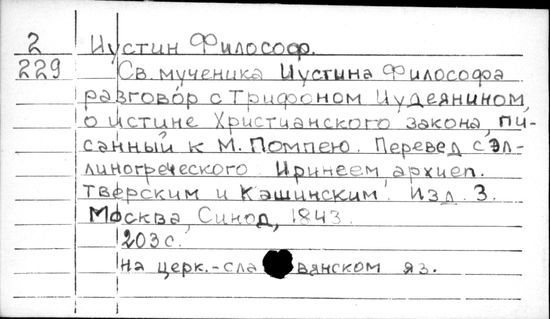 2 Иустин Философ.
229 Св. мученика Иустина Философа
разговор с Трифоном Иудеянином,
о истине Христианского закона, пи-
санный к М. Помпею. Перевед с эл-
линогреческого Иринеем, архиеп.
тверским и Кашинским. Изд. 3.
Москва, Синод, 1843.
203 с.
на церк.-славянском яз.